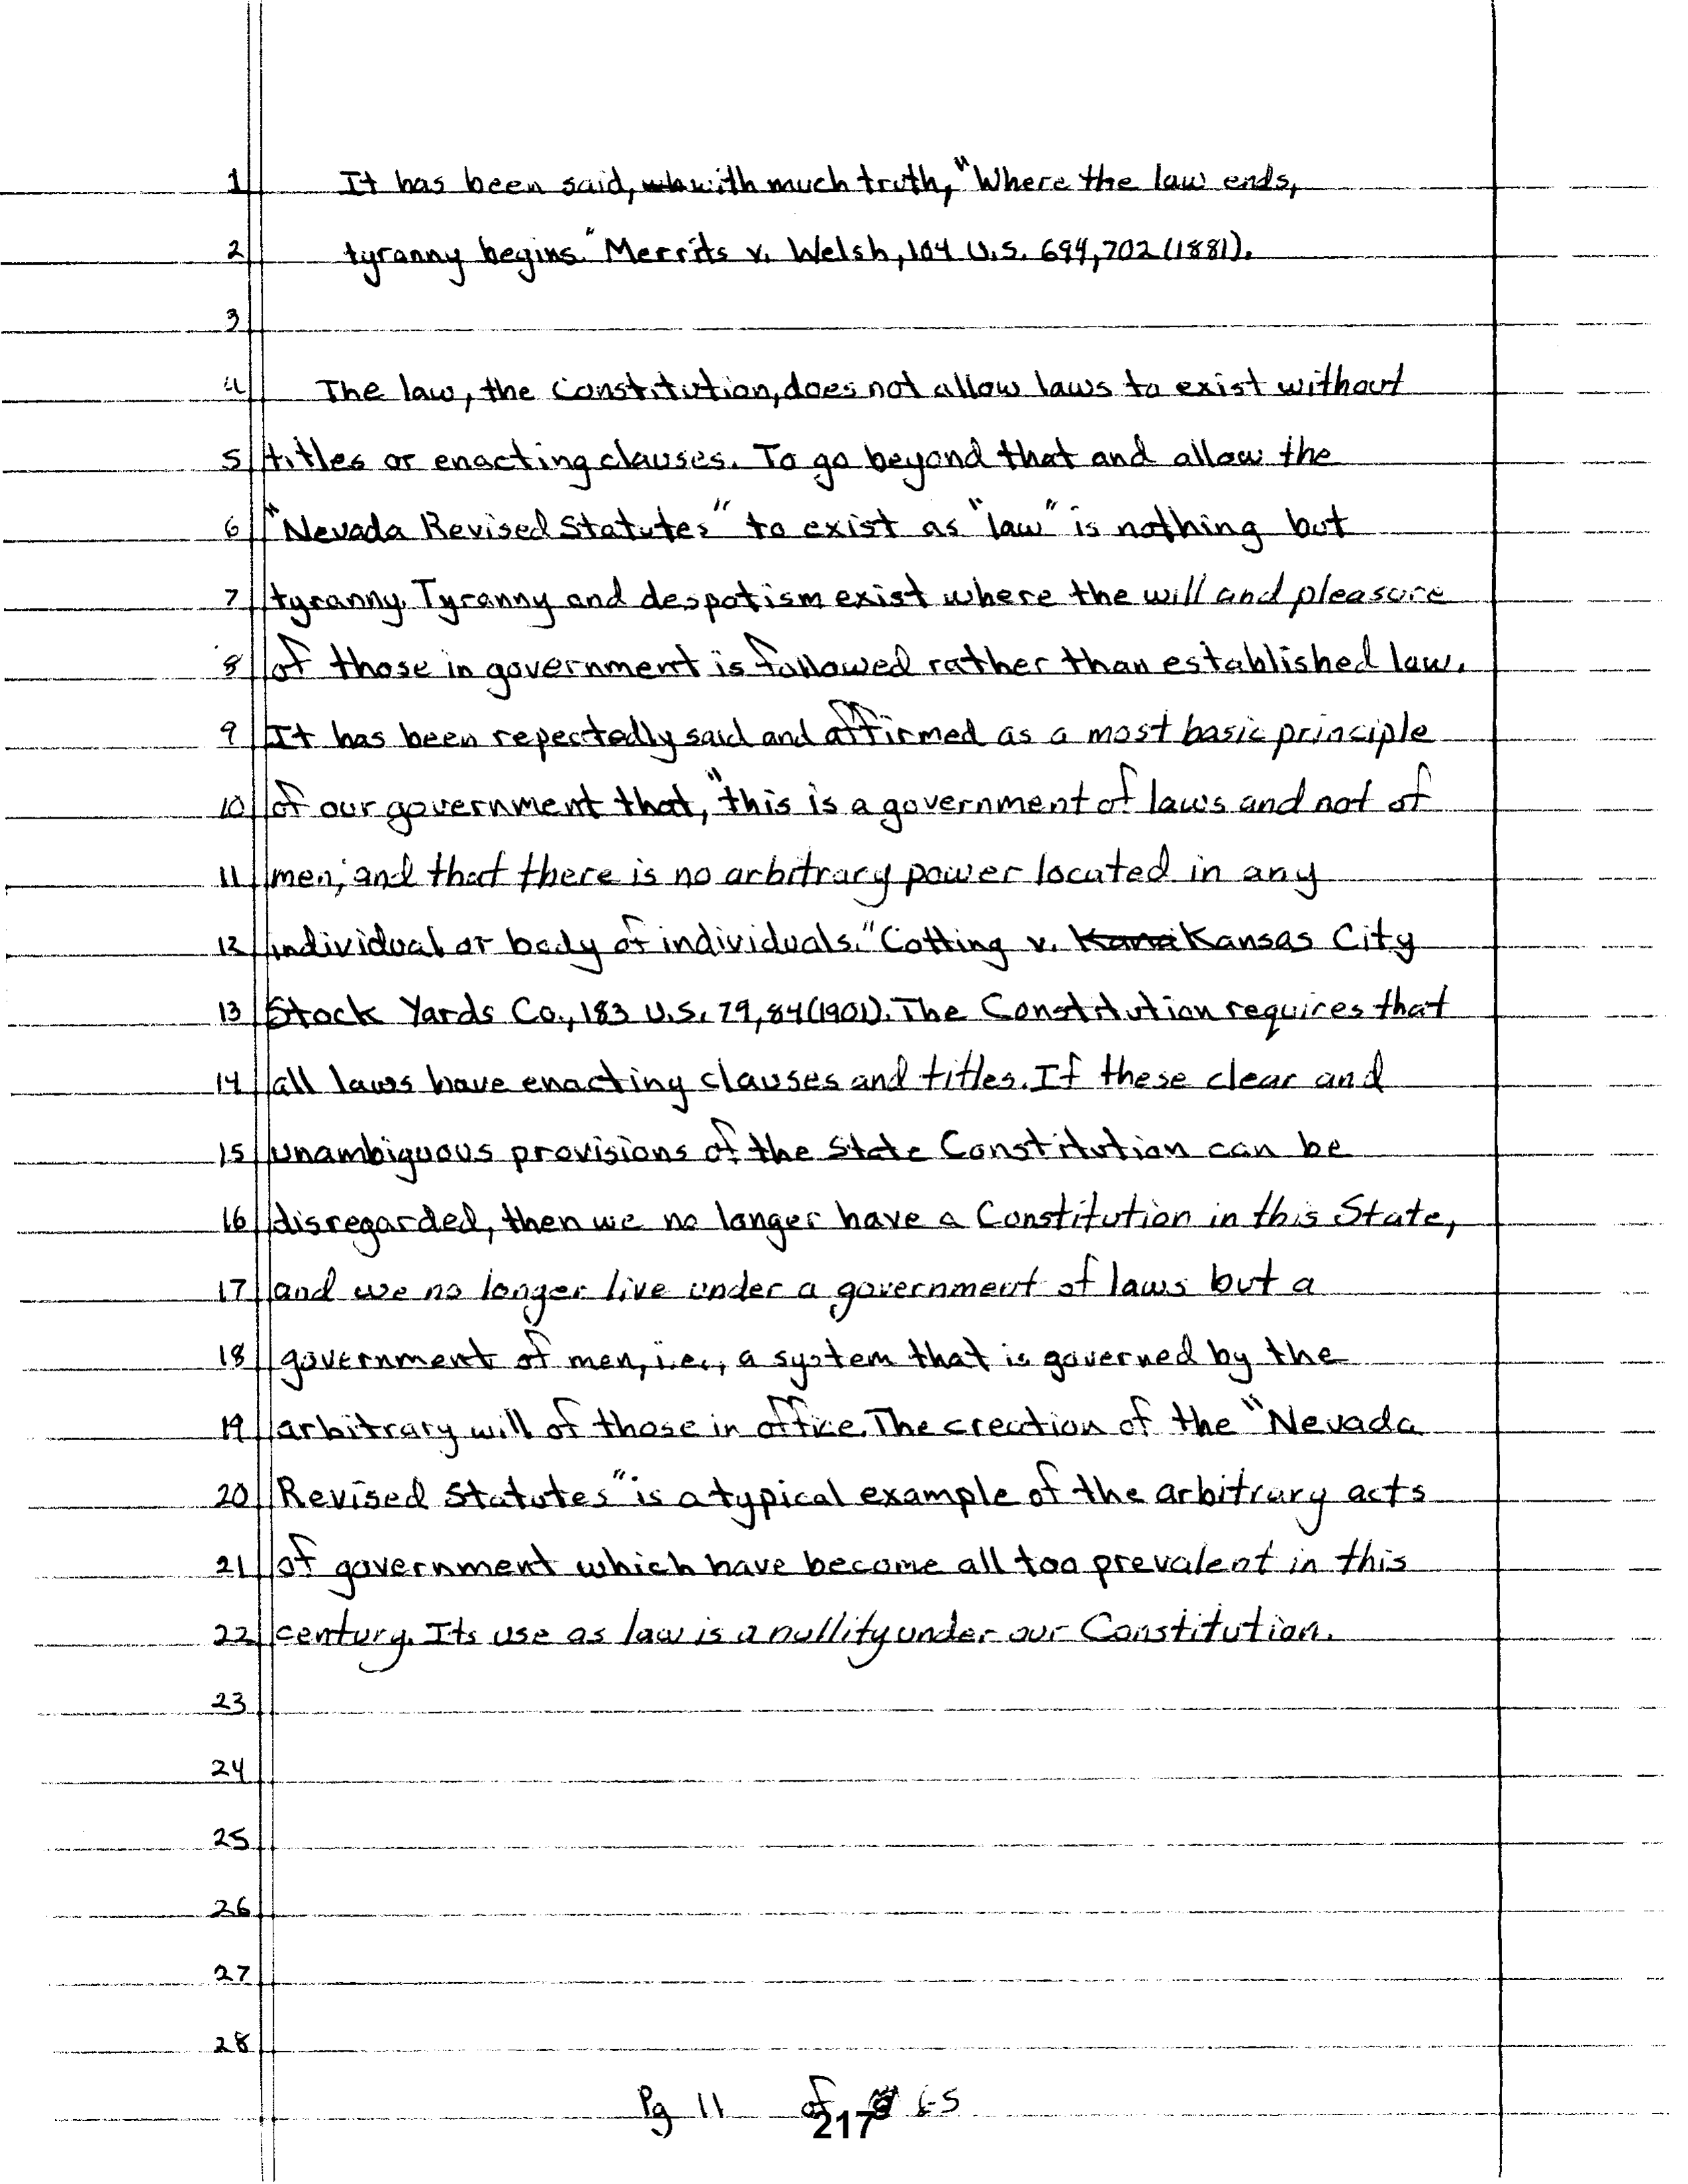 1 It has been said, with much truth, "Where the law ends,
2 tyranny begins." Merrits v. Welsh, 104 U.S. 694, 702 (1881).
3
4 The law, the Constitution, does not allow laws to exist without
5 titles or enacting clauses. To go beyond that and allow the
6 "Nevada Revised Statutes" to exist as "law" is nothing but
7 tyranny. Tyranny and despotism exist where the will and pleasure
8 of those in government is followed rather than established law.
9 It has been repeatedly said and affirmed as a most basic principle
10 of our government that, "this is a government of laws and not of
11 men; and that there is no arbitrary power located in any
12 individual or body of individuals." Cotting v. Kansas City
13 Stock Yards Co., 183 U.S. 79, 84 (1901). The Constitution requires that
14 all laws have enacting clauses and titles. If these clear and
15 unambiguous provisions of the State Constitution can be
16 disregarded, then we no longer have a Constitution in this State,
17 and we no longer live under a government of laws but a
18 government of men, i.e., a system that is governed by the
19 arbitrary will of those in office. The creation of the "Nevada
20 Revised Statutes" is a typical example of the arbitrary acts
21 of government which have become all too prevalent in this
22 century. Its use as law is a nullity under our Constitution.
23
24
25
26
27
28
Pg 11 of 65
217